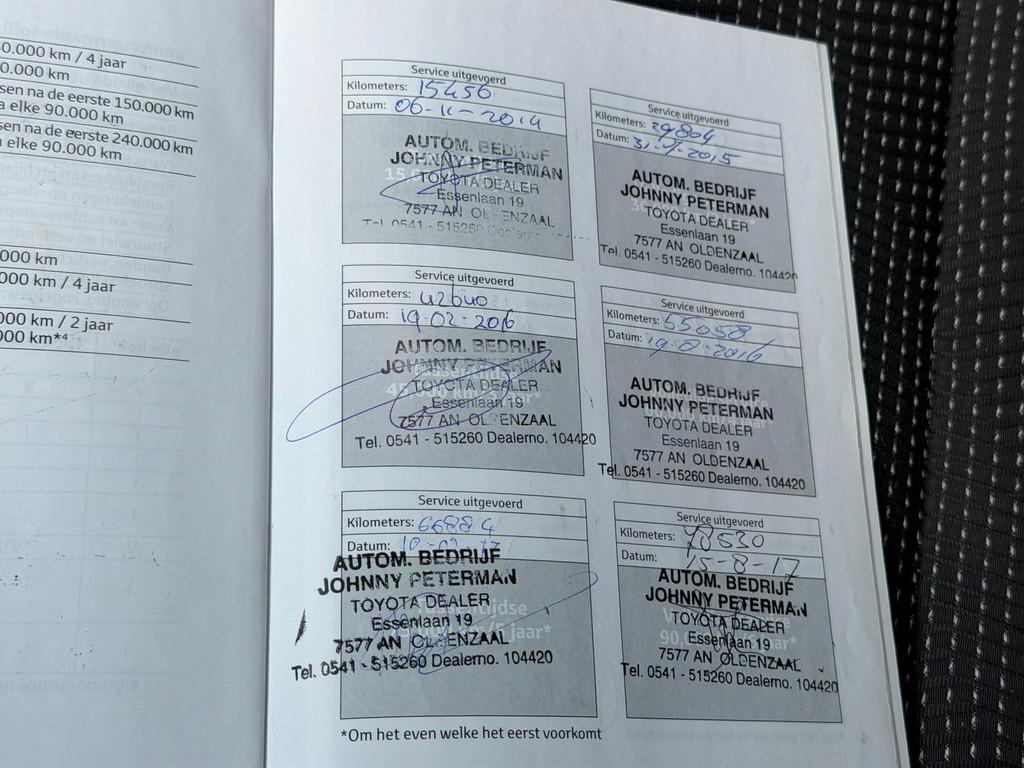 0.000 km / 4 jaar
0.000 km
sen na de eerste 150.000 km
elke 90.000 km
sen na de eerste 240.000 km
elke 90.000 km
000 km
000 km / 4 jaar
000 km / 2 jaar
000 km*⁴
Service uitgevoerd
Kilometers: 15456
Datum: 06-11-2014
AUTOM. BEDRIJF
JOHNNY PETERMAN
TOYOTA DEALER
Essenlaan 19
7577 AN OLDENZAAL
Tel. 0541 - 515260
Service uitgevoerd
Kilometers: 29804
Datum:
AUTOM. BEDRIJF
JOHNNY PETERMAN
TOYOTA DEALER
Essenlaan 19
7577 AN OLDENZAAL
Tel. 0541 - 515260 Dealerno. 104420
Service uitgevoerd
Kilometers: 42640
Datum: 19-02-2016
AUTOM. BEDRIJF
JOHNNY PETERMAN
TOYOTA DEALER
Essenlaan 19
7577 AN OLDENZAAL
Tel. 0541 - 515260 Dealerno. 104420
Service uitgevoerd
Kilometers: 55058
Datum: 19-8-2016
AUTOM. BEDRIJF
JOHNNY PETERMAN
TOYOTA DEALER
Essenlaan 19
7577 AN OLDENZAAL
Tel. 0541 - 515260 Dealerno. 104420
Service uitgevoerd
Kilometers: 66884
Datum:
AUTOM. BEDRIJF
JOHNNY PETERMAN
TOYOTA DEALER
Essenlaan 19
7577 AN OLDENZAAL
Tel. 0541 - 515260 Dealerno. 104420
Service uitgevoerd
Kilometers: 78530
Datum: 15-8-17
AUTOM. BEDRIJF
JOHNNY PETERMAN
TOYOTA DEALER
Essenlaan 19
7577 AN OLDENZAAL
Tel. 0541 - 515260 Dealerno. 104420
*Om het even welke het eerst voorkomt